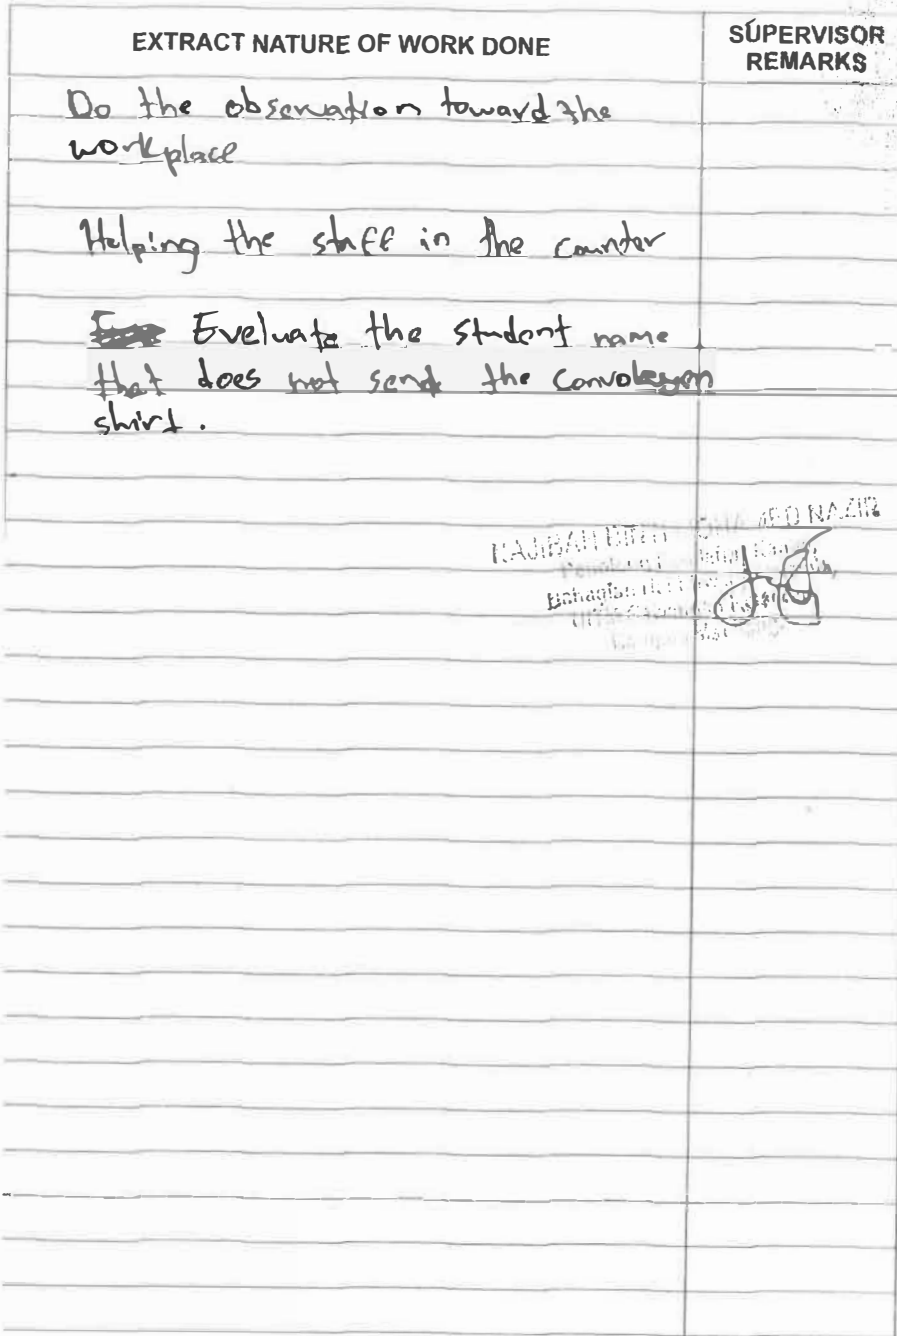 EXTRACT NATURE OF WORK DONE
SUPERVISOR
REMARKS
Do the observation toward the
workplace
Helping the staff in the counter
Eveluate the student name
that does not send the convokeyen
shirt.
NAZIR